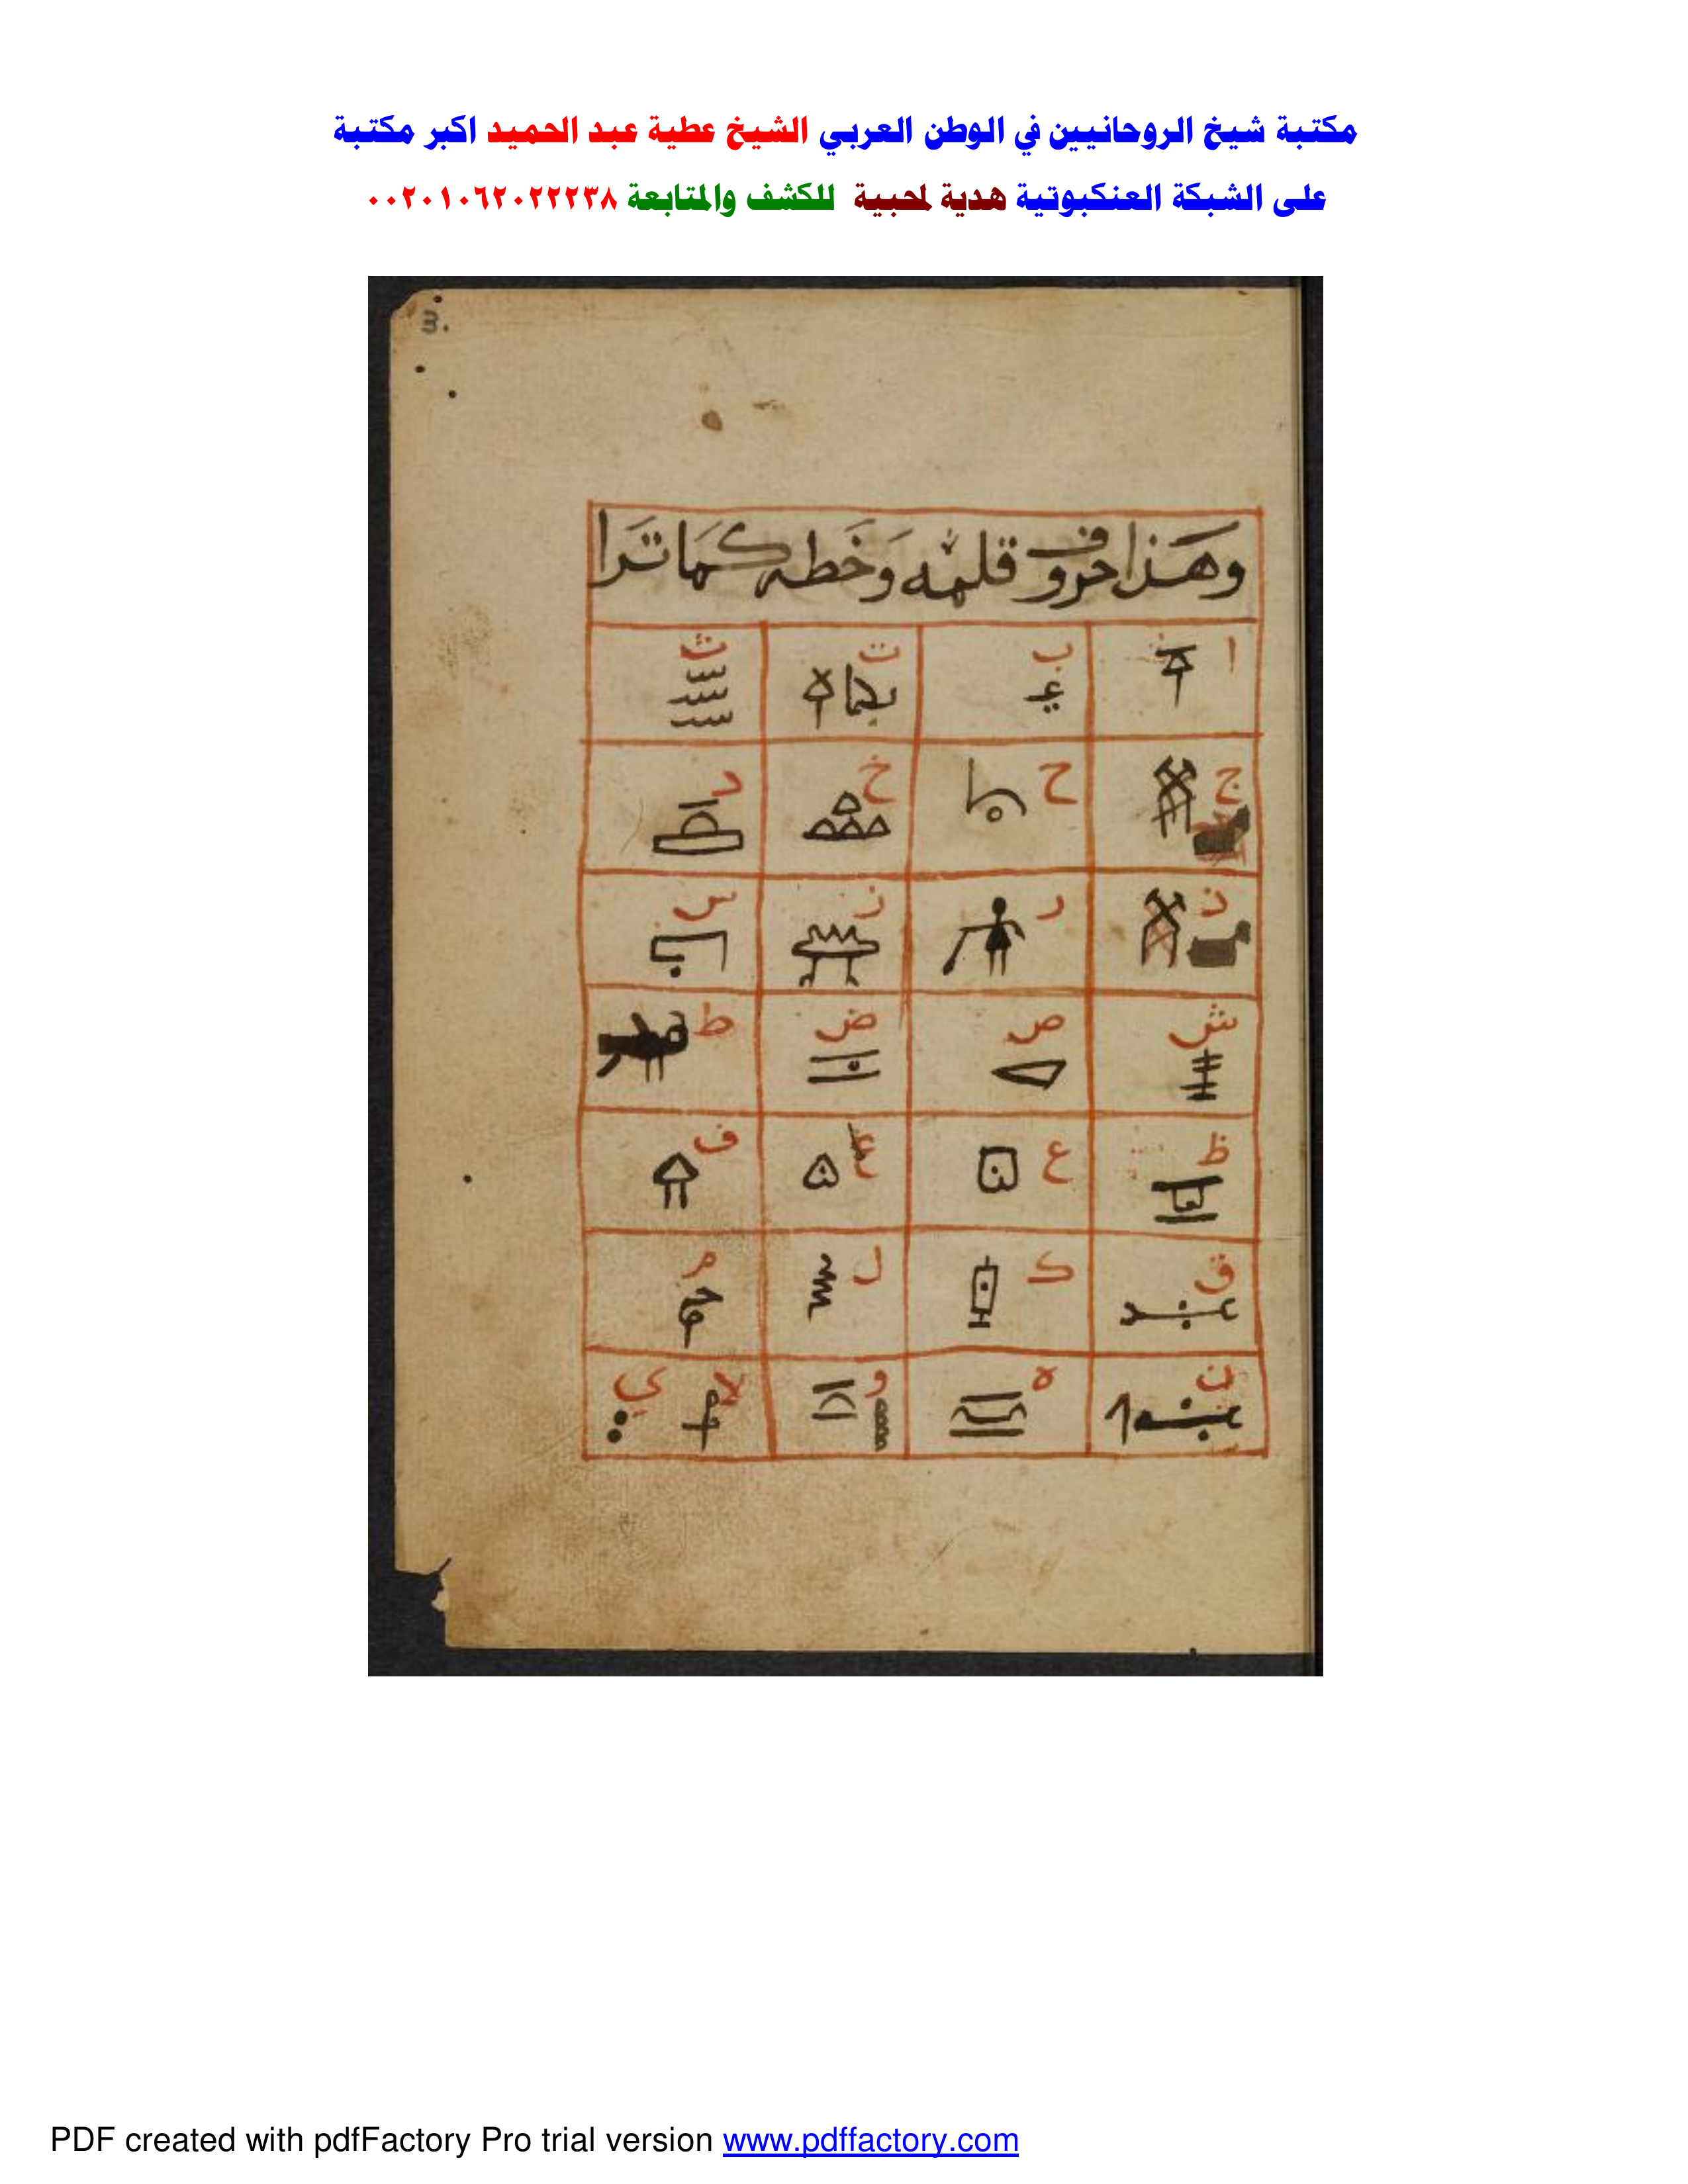 مكتبة شيخ الروحانيين في الوطن العربي الشيخ عطية عبد الحميد اكبر مكتبة
على الشبكة العنكبوتية هدية لمحبية للكشف والمتابعة ٠٠٢٠١٠٦٢٠٢٢٢٣٨
3.
وهَذا حروف قلمه وَخَطه كَمَا تَرا
ا ب ت ث
ج ح خ د
ذ ر ز س
ش ص ض ط
ظ ع غ ف
ق ك ل م
ن ه و لا ي
PDF created with pdfFactory Pro trial version www.pdffactory.com